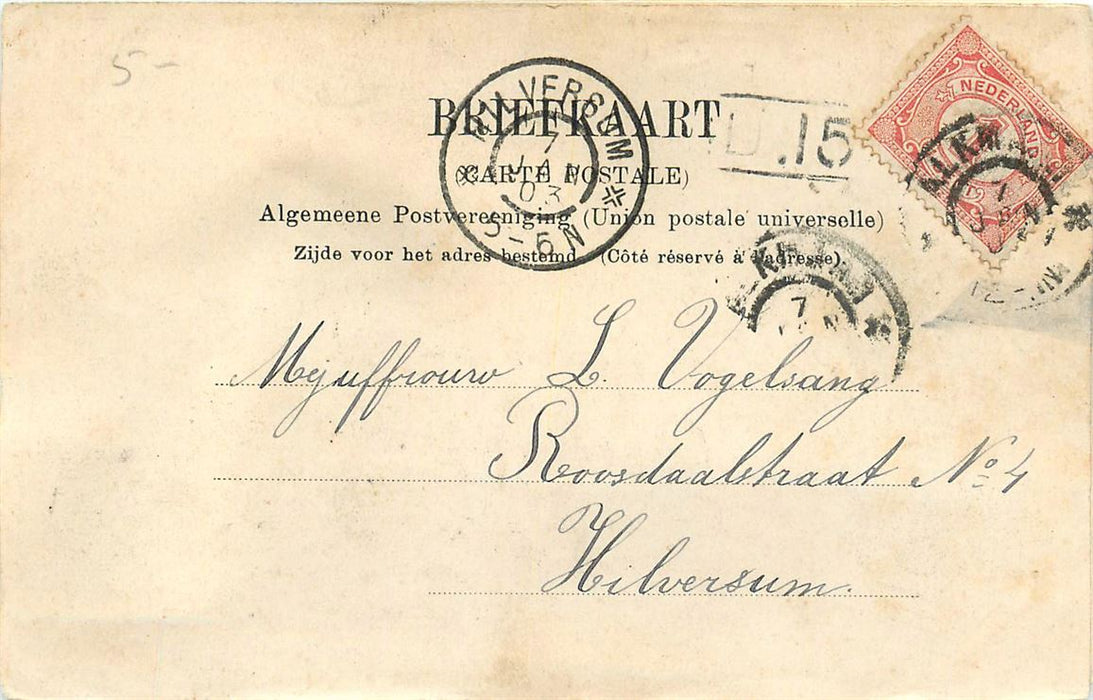 5-
BRIEFKAART
(CARTE POSTALE)
Algemeene Postvereeniging (Union postale universelle)
Zijde voor het adres bestemd. (Côté réservé à l'adresse)
HILVERSUM
7
JAN
03
5-6N
.15
NEDERLAND
ALKMAAR
7
JAN
7
Mejuffrouw L. Vogelsang
Roosdaalstraat No 4
Hilversum.